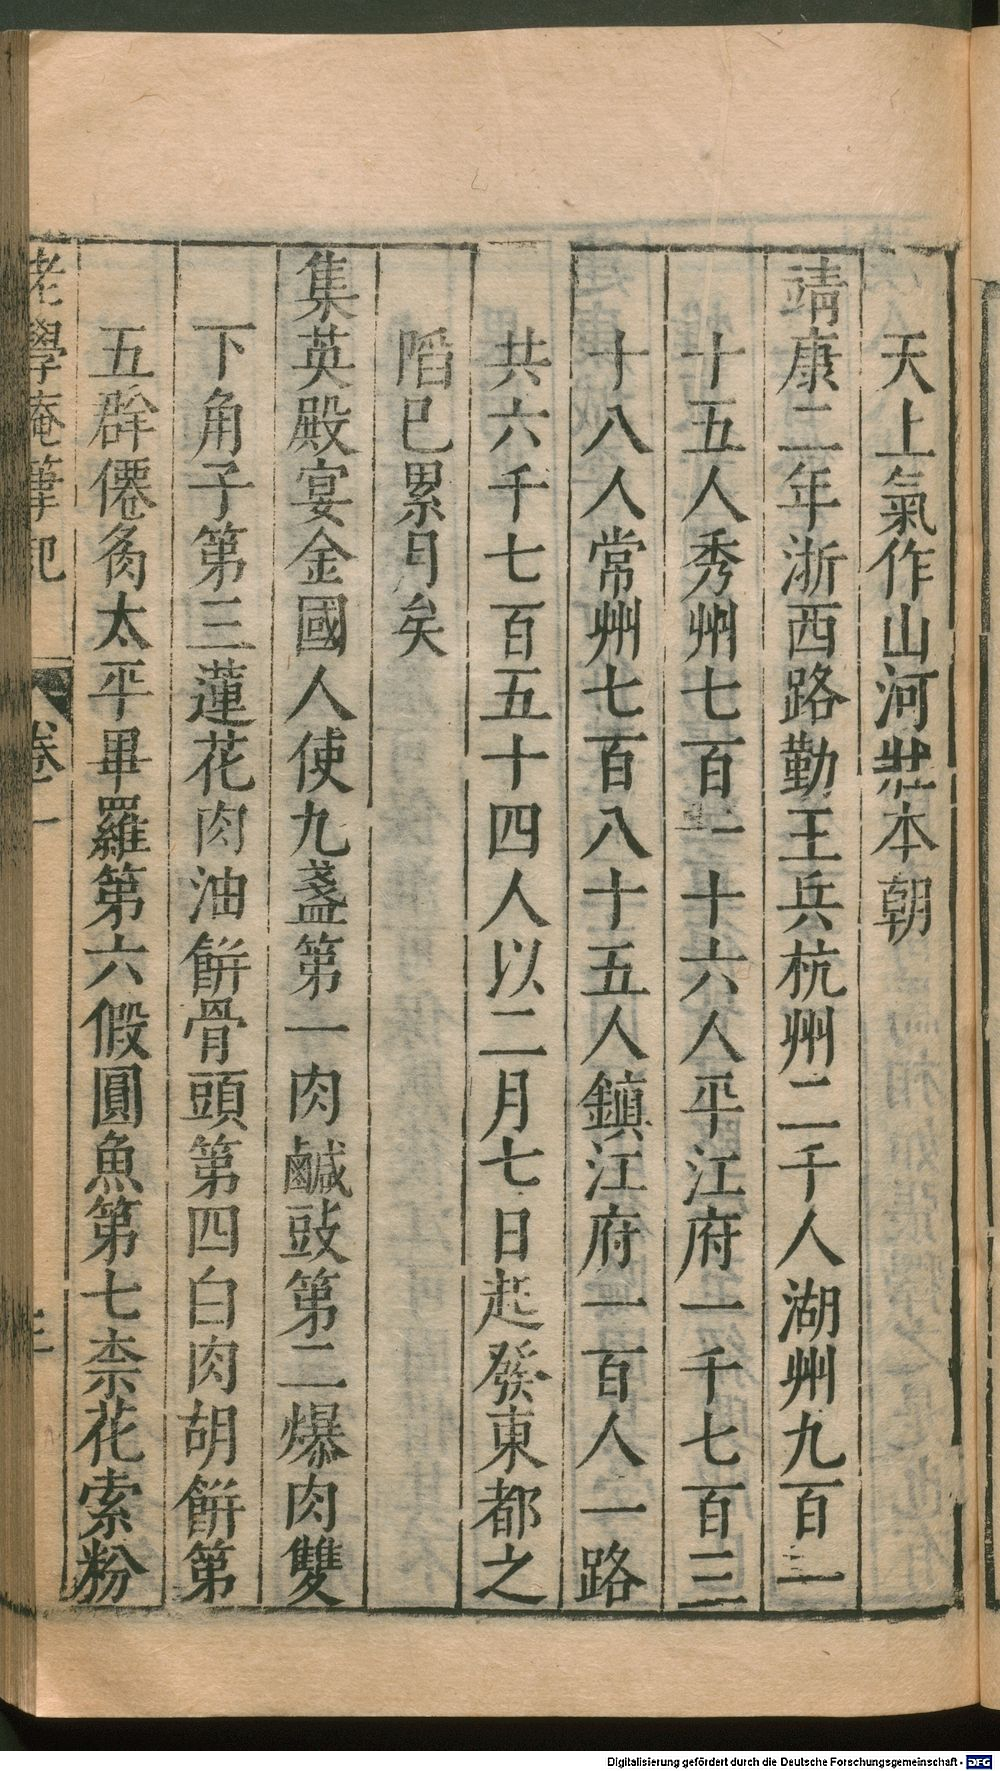 天上氣作山河壯本朝
靖康二年浙西路勤王兵杭州二千人湖州九百一
十五人秀州七百一十六人平江府一千七百三
十八人常州七百八十五人鎮江府一百人一路
共六千七百五十四人以二月七日起發東都之
䧟已累月矣
集英殿宴金國人使九盞第一肉鹹豉第二爆肉雙
下角子第三蓮花肉油餅骨頭第四白肉胡餅第
五群僊炙太平畢羅第六假圓魚第七柰花索粉
老學庵筆記 卷一 三
Digitalisierung gefördert durch die Deutsche Forschungsgemeinschaft - DFG